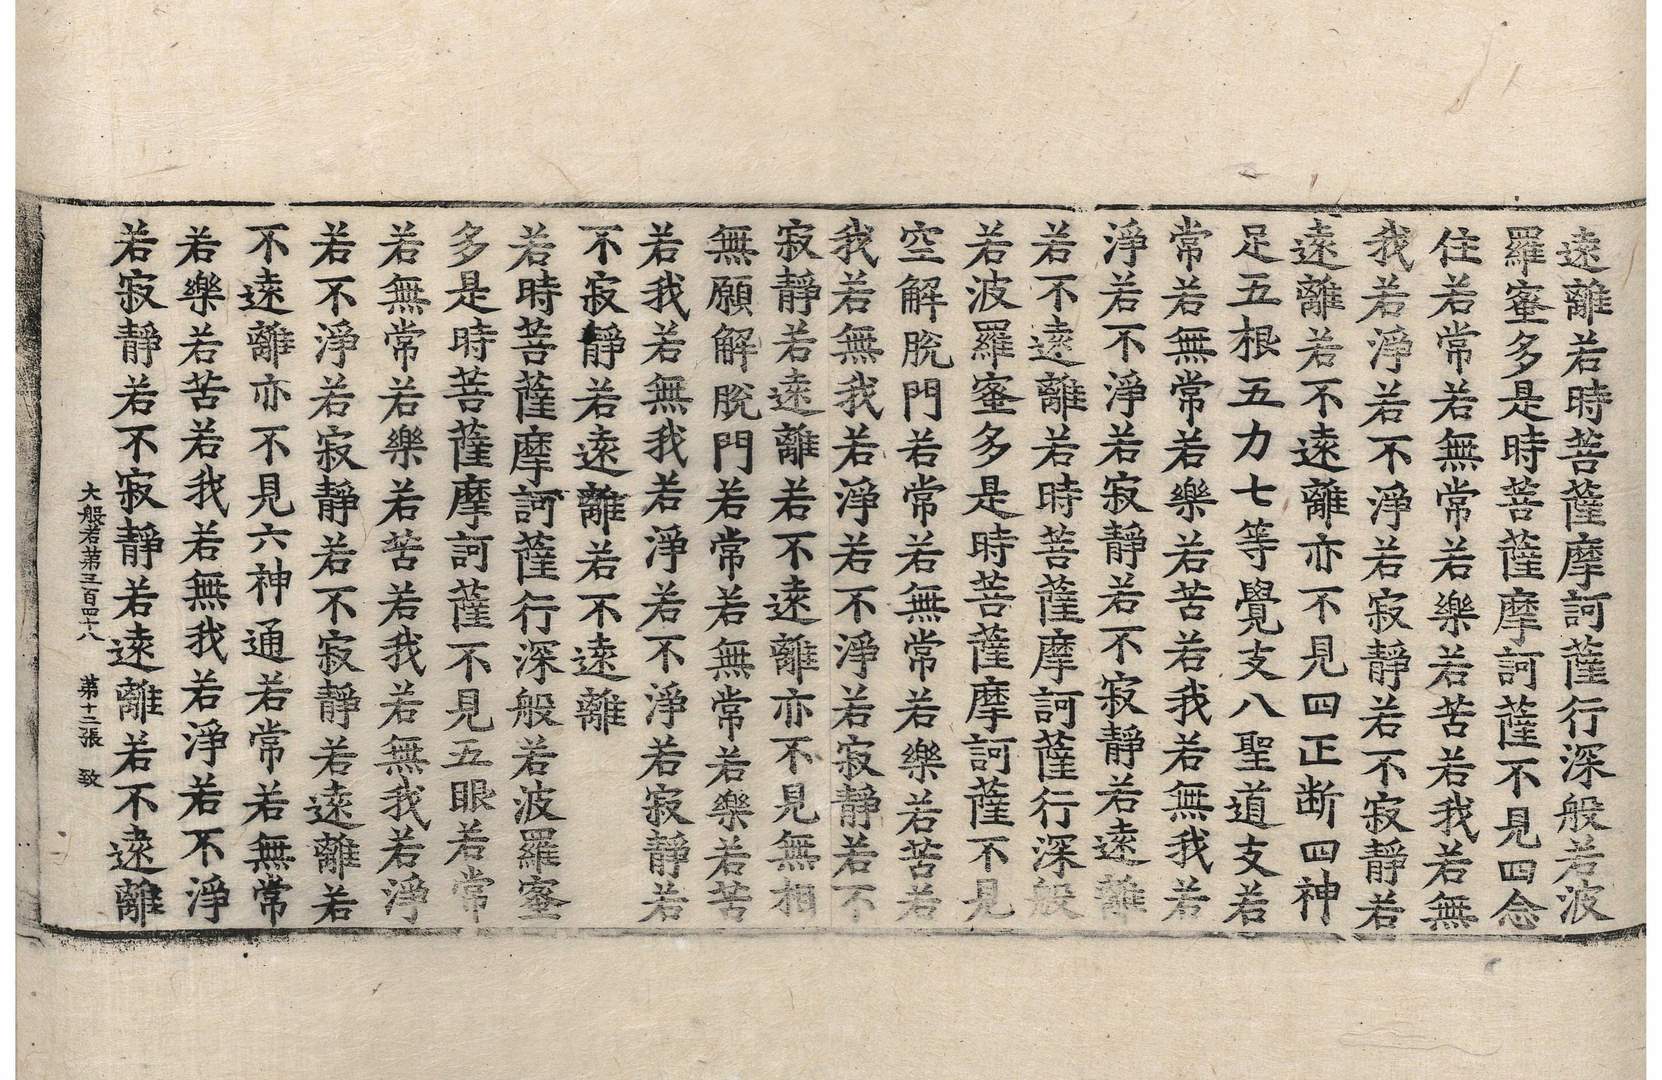 遠離若時菩薩摩訶薩行深般若波
羅蜜多是時菩薩摩訶薩不見四念
住若常若無常若樂若苦若我若無
我若淨若不淨若寂靜若不寂靜若
遠離若不遠離亦不見四正断四神
足五根五力七等覺支八聖道支若
常若無常若樂若苦若我若無我若
淨若不淨若寂靜若不寂靜若遠離
若不遠離若時菩薩摩訶薩行深般
若波羅蜜多是時菩薩摩訶薩不見
空解脫門若常若無常若樂若苦若
我若無我若淨若不淨若寂靜若不
寂靜若遠離若不遠離亦不見無相
無願解脫門若常若無常若樂若苦
若我若無我若淨若不淨若寂靜若
不寂靜若遠離若不遠離
若時菩薩摩訶薩行深般若波羅蜜
多是時菩薩摩訶薩不見五眼若常
若無常若樂若苦若我若無我若淨
若不淨若寂靜若不寂靜若遠離若
不遠離亦不見六神通若常若無常
若樂若苦若我若無我若淨若不淨
若寂靜若不寂靜若遠離若不遠離
大般若第三百四十八 第十二張 致